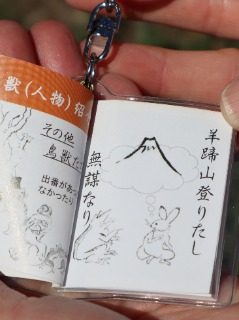 獣(人物)紹
その他
鳥獣た
出番があ
なかったり
羊蹄山登りたし
無謀なり